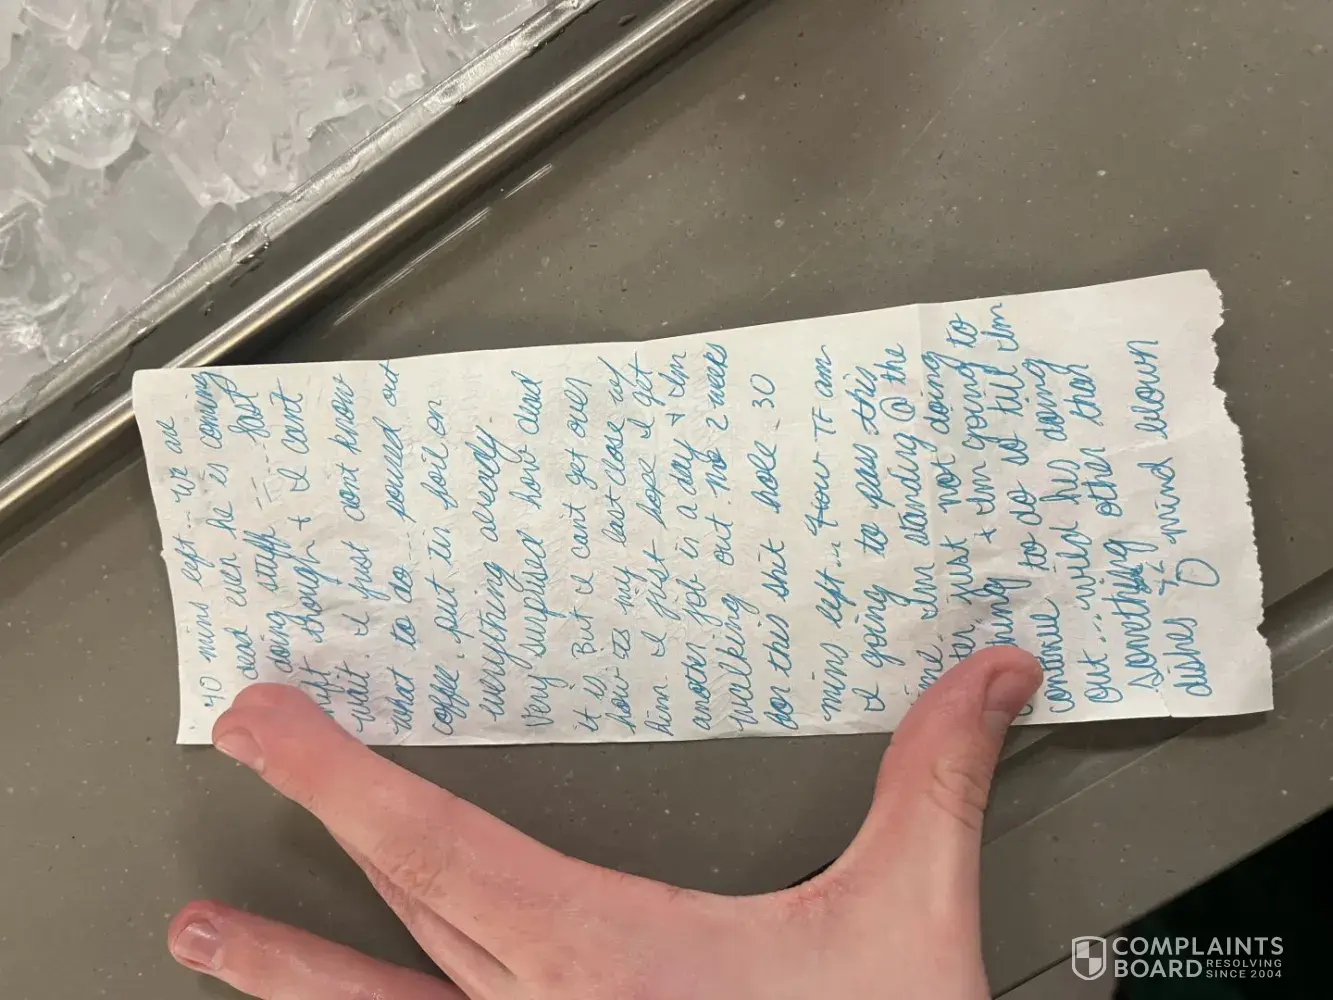 40 mins left... We are
dead even he is coming
doing stuff -- last
though + I can't
wait. I just dont know
what to do... poured out
coffee. put tes foil on
everything already.
Very surpised how dead
it is. But I can't get over
how its my last close w/
him. I just hope I get
another job in a day + Im
walking out. No 2 weeks
for this shit hole. 30
mins left... How Tf am
I going to pass this
time. Im standing @ the
just not doing
+ Im going to
continue to do so till Im
out... wild hes doing
something other than
dishes mind blown
COMPLAINTS
BOARD RESOLVING
SINCE 2004